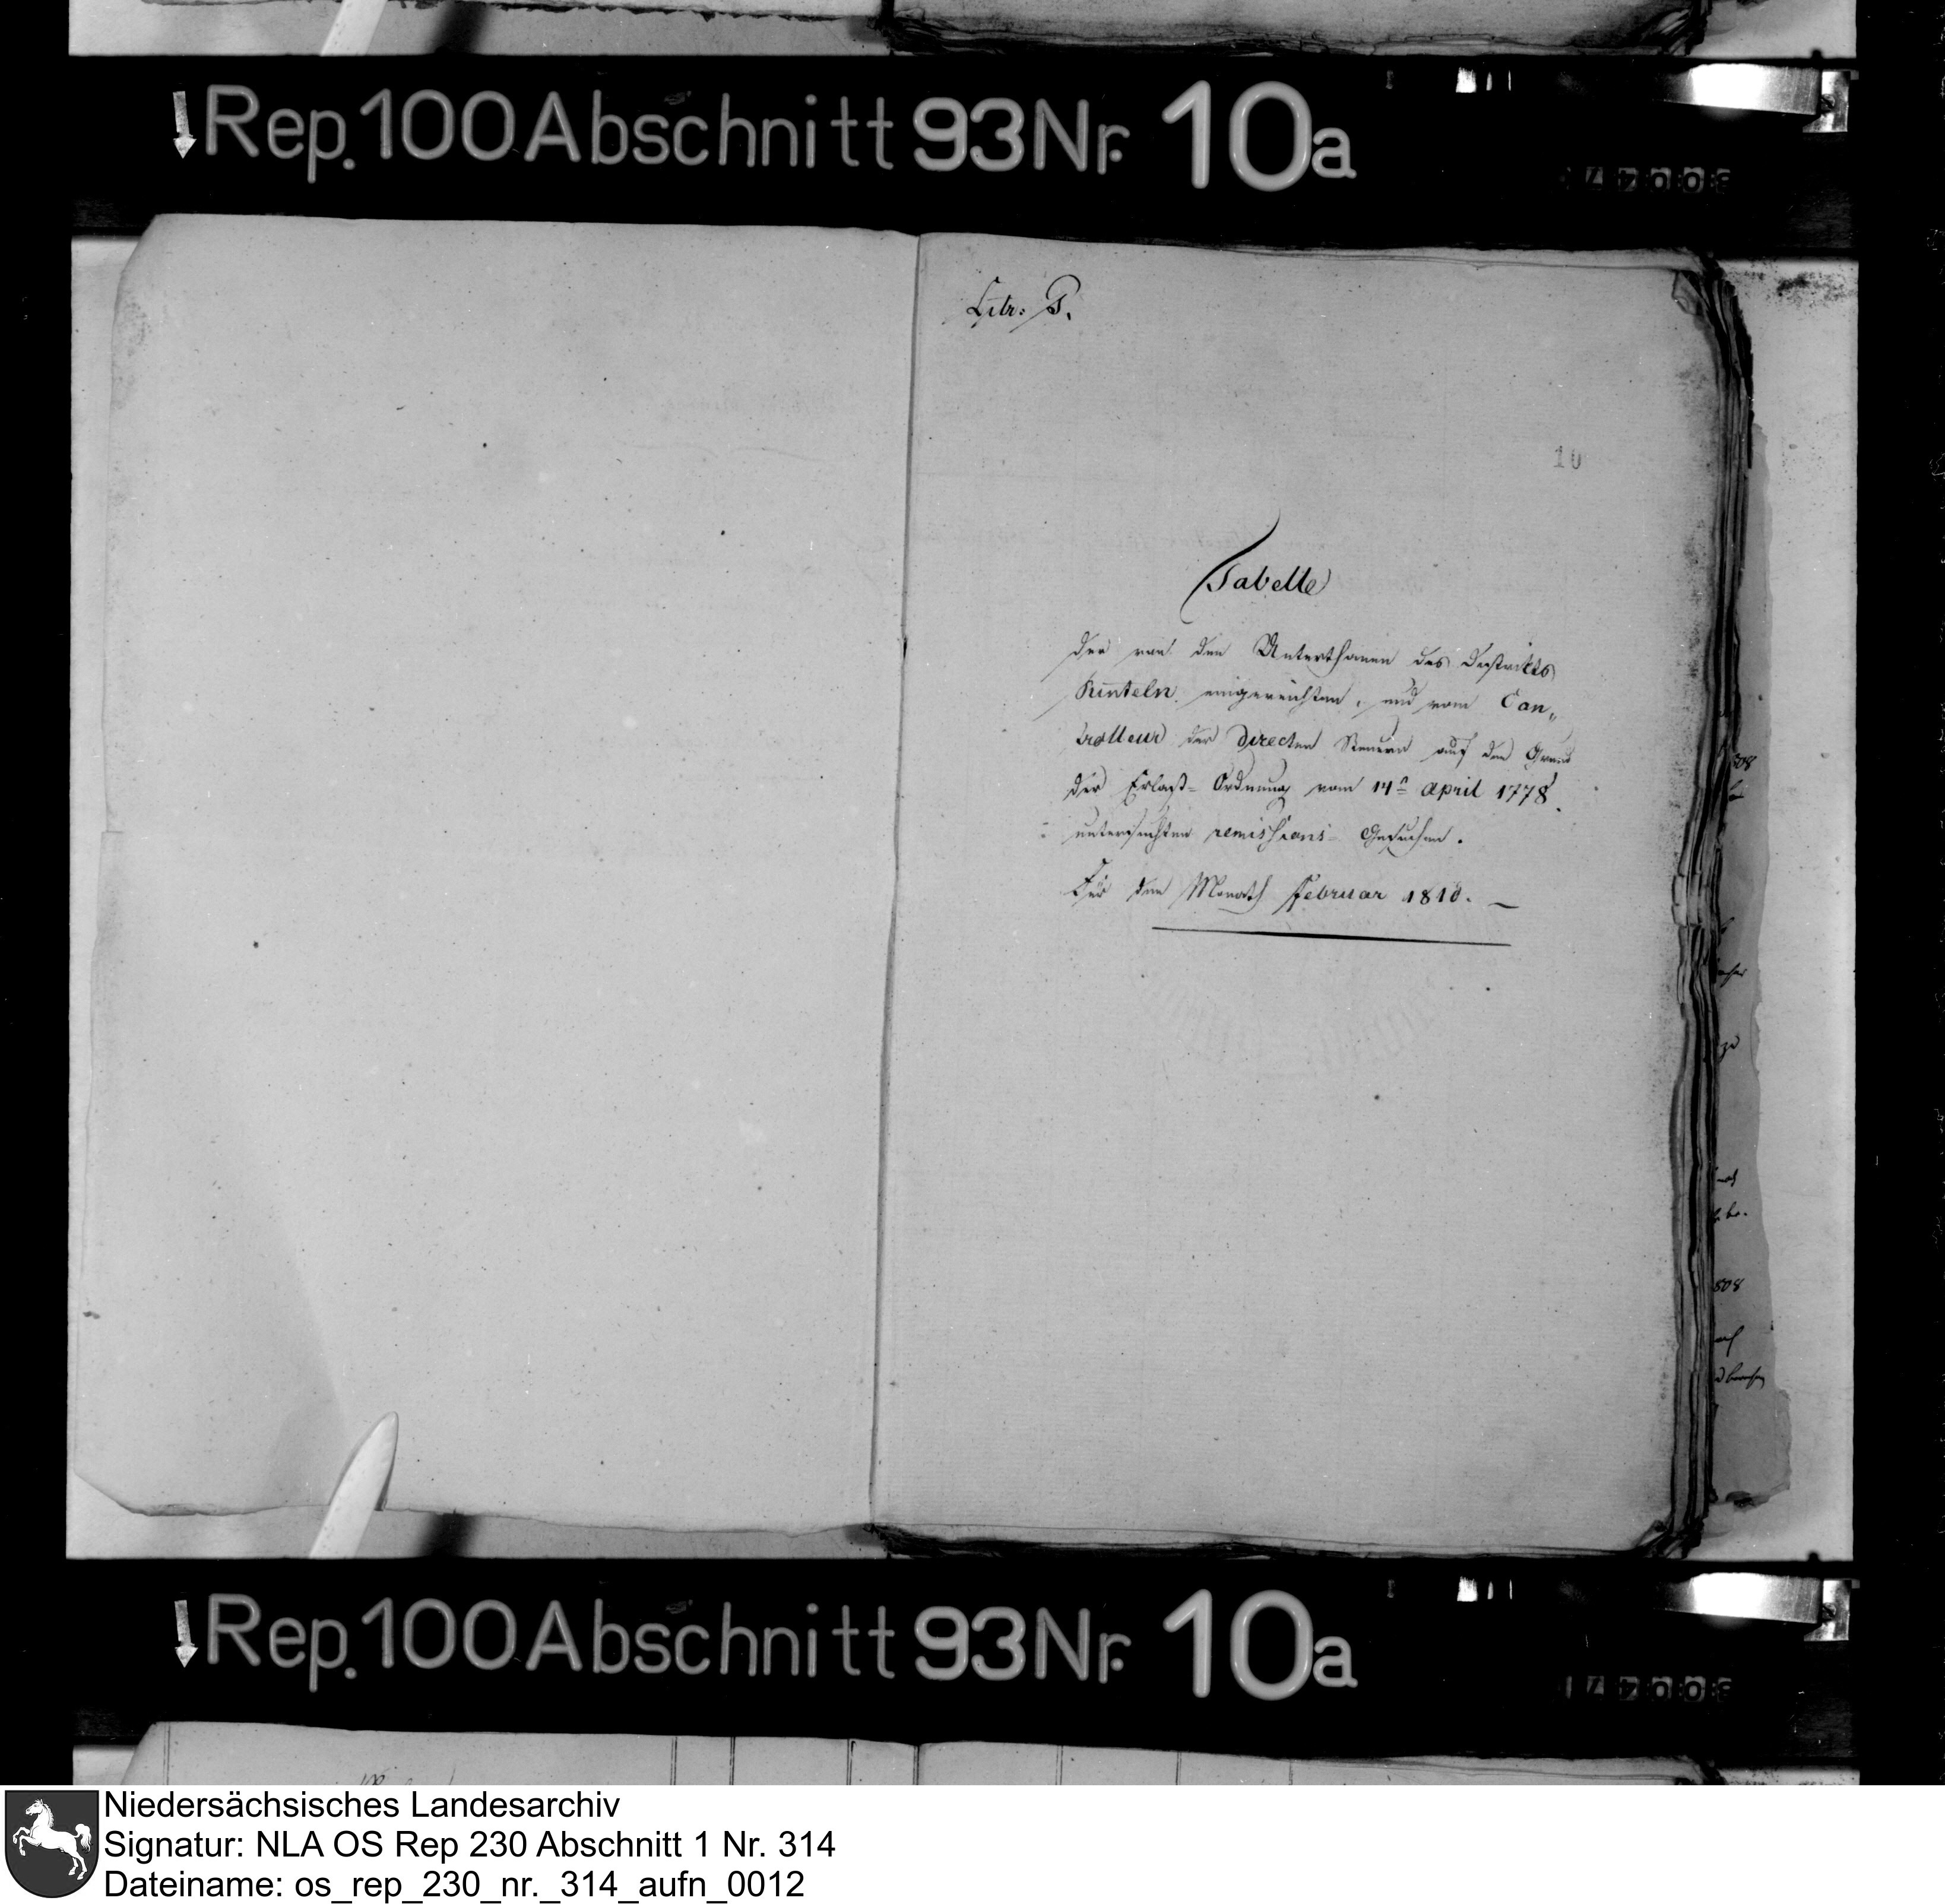 Rep. 100 Abschnitt 93 Nr. 10a
Litr: P.
10
Tabelle
der von den Unterthanen des Distrikts
Rinteln eingereichten, und vom Con„
trolleur der directen Steuern auf den Grund
der Erlaß- Ordnung vom 14n April 1778
untersuchten remissions- Gesuchen.
Für den Monath Februar 1810. —
Rep. 100 Abschnitt 93 Nr. 10a
Niedersächsisches Landesarchiv
Signatur: NLA OS Rep 230 Abschnitt 1 Nr. 314
Dateiname: os_rep_230_nr._314_aufn_0012